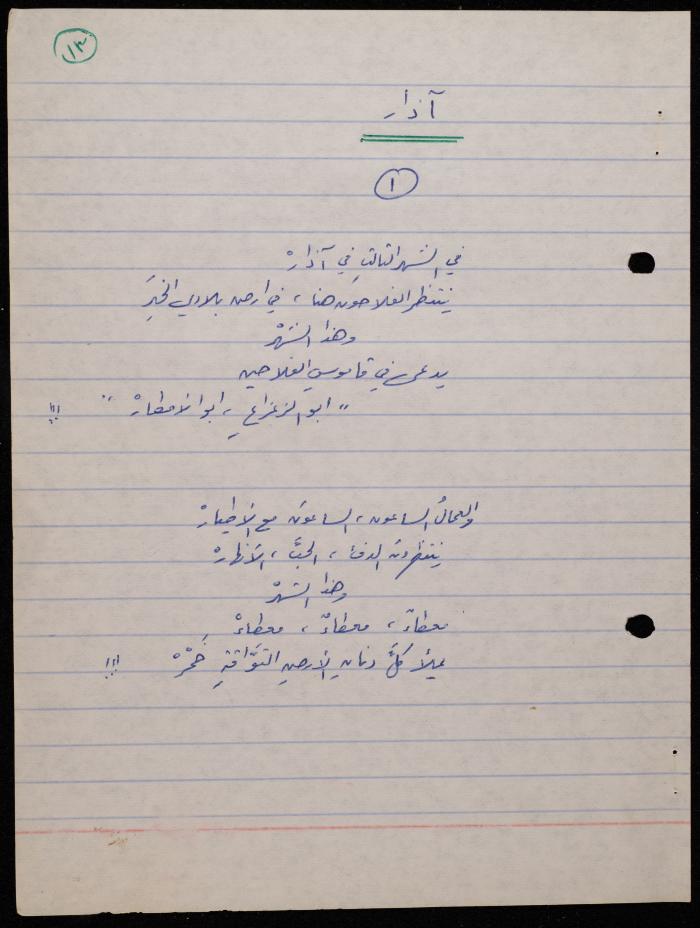 ١٣
آذار
١
في الشهر الثالثِ في آذارْ
ينتظر الفلاحون هنا، في ارض بلادي الخيَر
وهذا الشهْر
يدعى في قاموسِ الفلاحين
"ابو الزعزاعِ، ابو الامطارْ" !!!
والعمالُ الساعون، الساعونَ مع الأطيارْ
ينتظرونَ الدفءَ، الحبَّ، الأزهارْ
وهذا الشهْرْ
معطاءٌ، معطاءٌ، معطاءْ
يملأ كلَّ دنانِ الأرضِ التوَّاقةِ خَمْرْ !!!